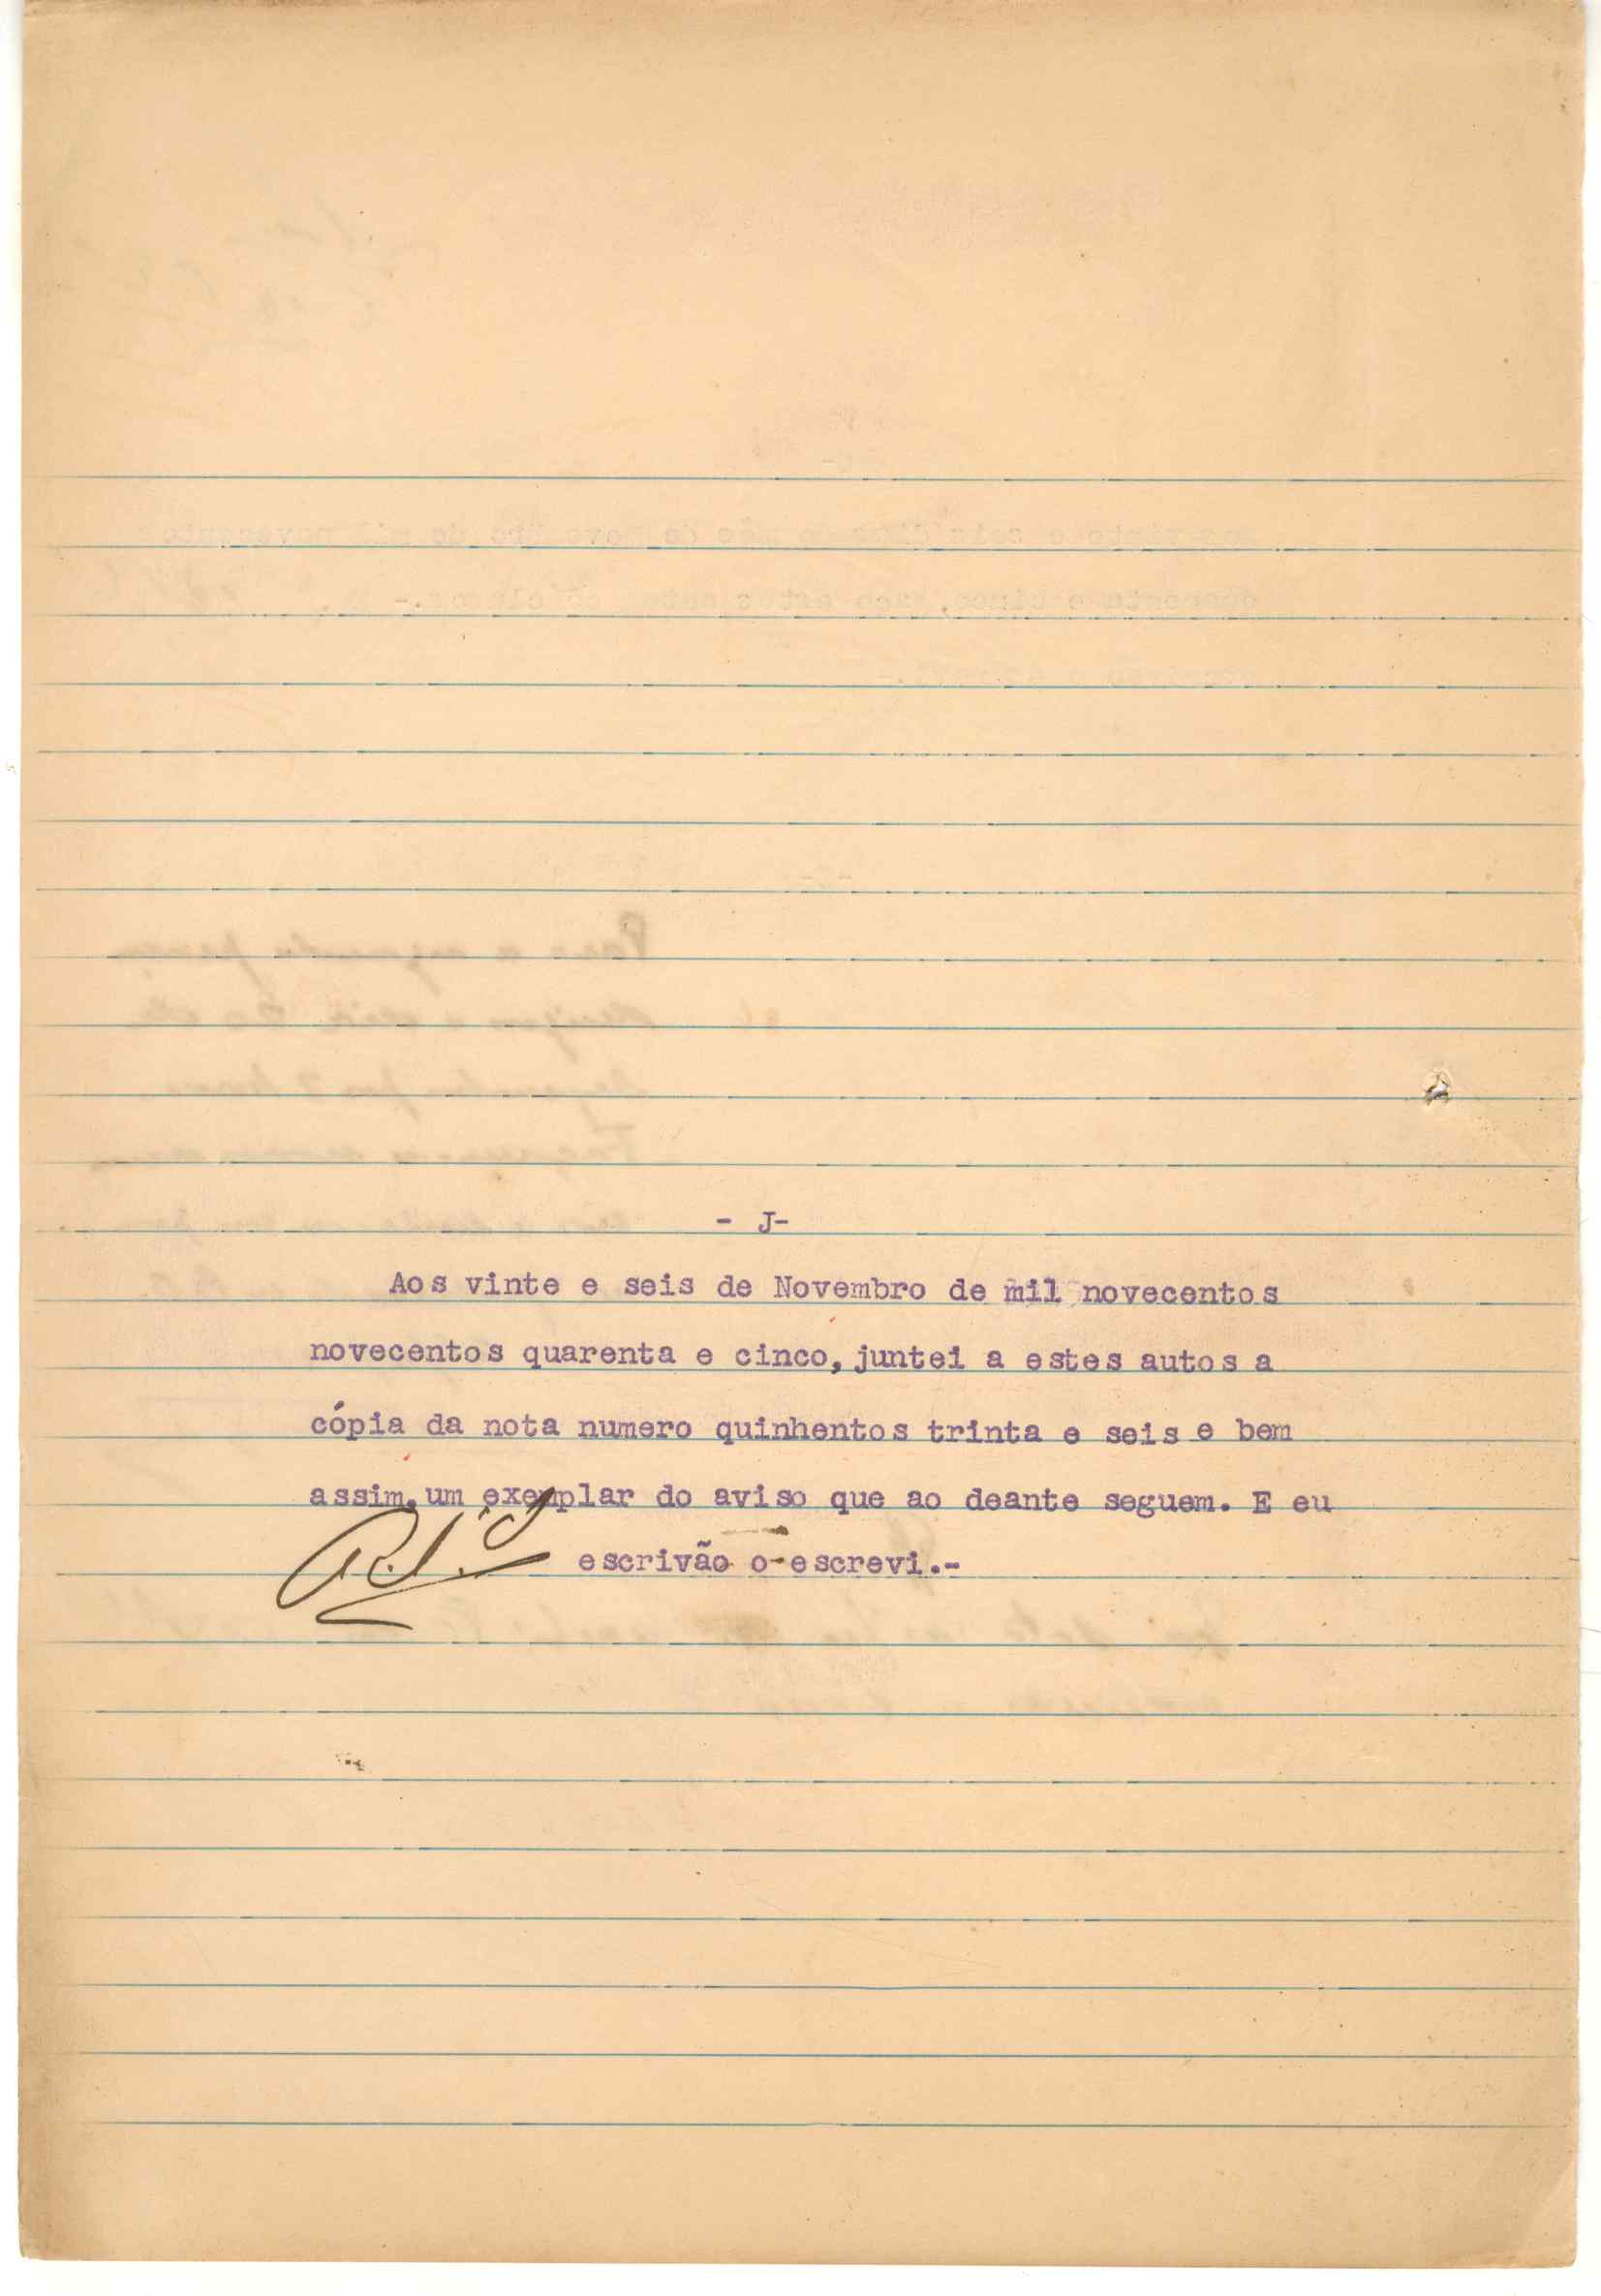 - J-
Aos vinte e seis de Novembro de mil novecentos
novecentos quarenta e cinco, juntei a estes autos a
cópia da nota numero quinhentos trinta e seis e bem
assim, um exemplar do aviso que ao deante seguem. E eu
escrivão o escrevi.-